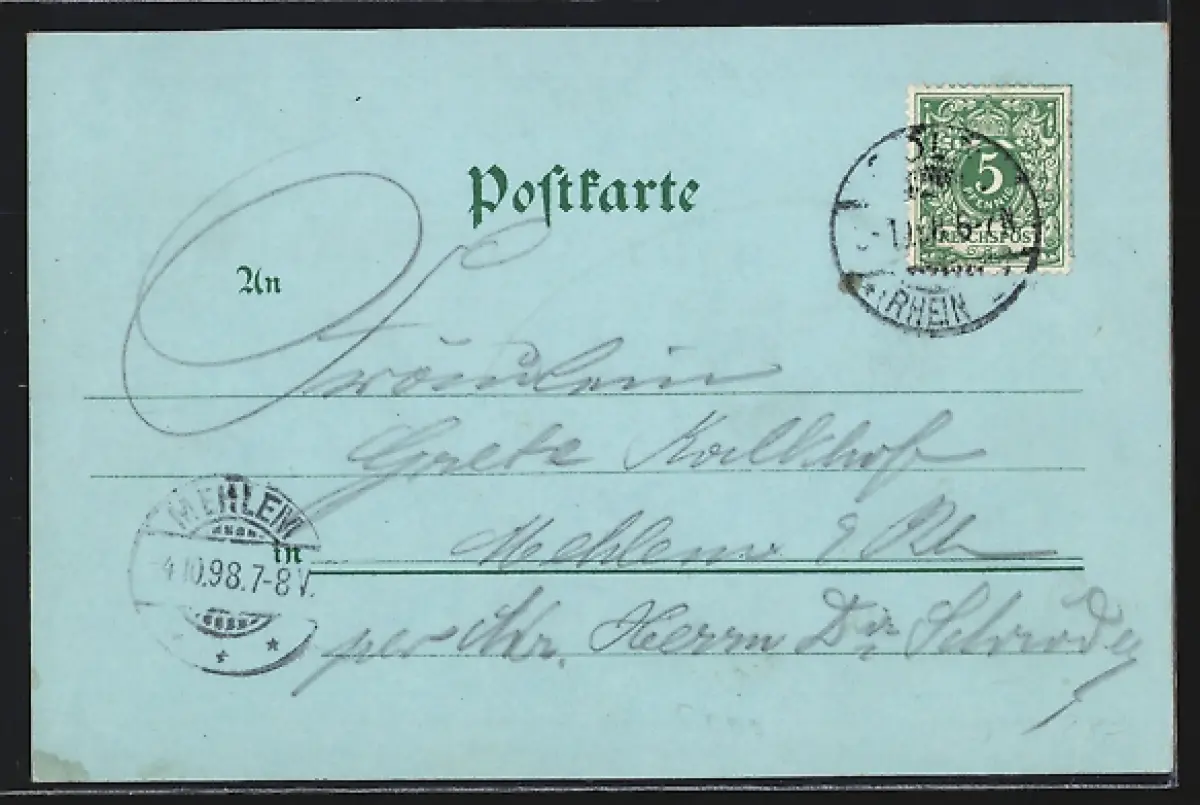 Postkarte
An
5
PFENNIG
REICHSPOST
6-7N
RHEIN
Fräulein
Grete Kalkhof
Mehlem a/Rh
in
MEHLEM
4.10.98.7-8V.
per Adr. Herrn Dr Schröder